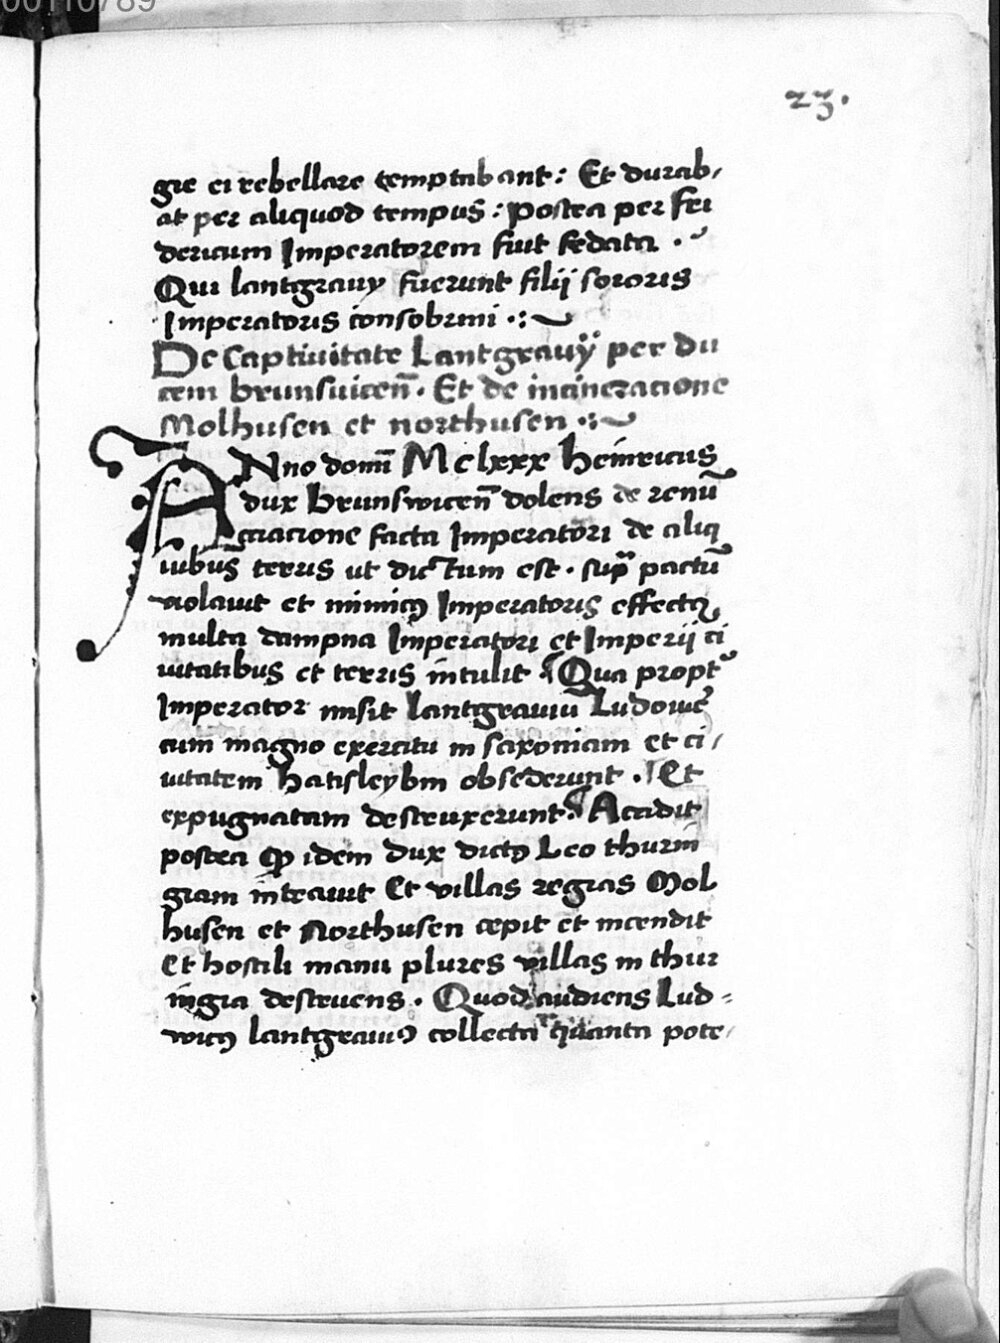 00110789
23.
gie ei rebellare temptabant: Et durab,
at per aliquod tempus: Postea per fri
dericum Imperatorem fuit sedata .
Qui lantgrauy fuerunt filij sororis
Imperatoris consobrini .:
De Captiuitate Lantgrauÿ per du
cem brunsuicen̄. Et de incineracione
Molhusen et northusen .:
ANno domī Mclxxx heinricus
dux Brunswicen̄ dolens de renū
cciacione facta Imperatori de aliq
uibus terris ut dictum est . suꝑ pactū
uiolauit et inimicꝰ Imperatoris effectꝰ
multa dampna Imperatori et Imperij ci
uitatibus et terris intulit Qua propt᷑
Imperator misit lantgrauiū Ludowicū
cum magno exercitu in saxoniam et ci/
uitatem hatisleybin obsederunt . Et
expugnatam destruxerunt. Accidit
postea ꝙ idem dux dictꝰ Leo thurin
giam intrauit Et villas regias Mol
husen et Northusen cepit et incendit
Et hostili manu plures villas in thur
ingia destruens . Quod audiens Lud=
wicꝰ lantgrauiꝰ collecta quanta pote/